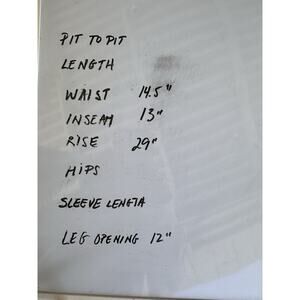 PIT TO PIT
LENGTH
WAIST 14.5"
INSEAM 13"
RISE 29"
HIPS
SLEEVE LENGTH
LEG OPENING 12"